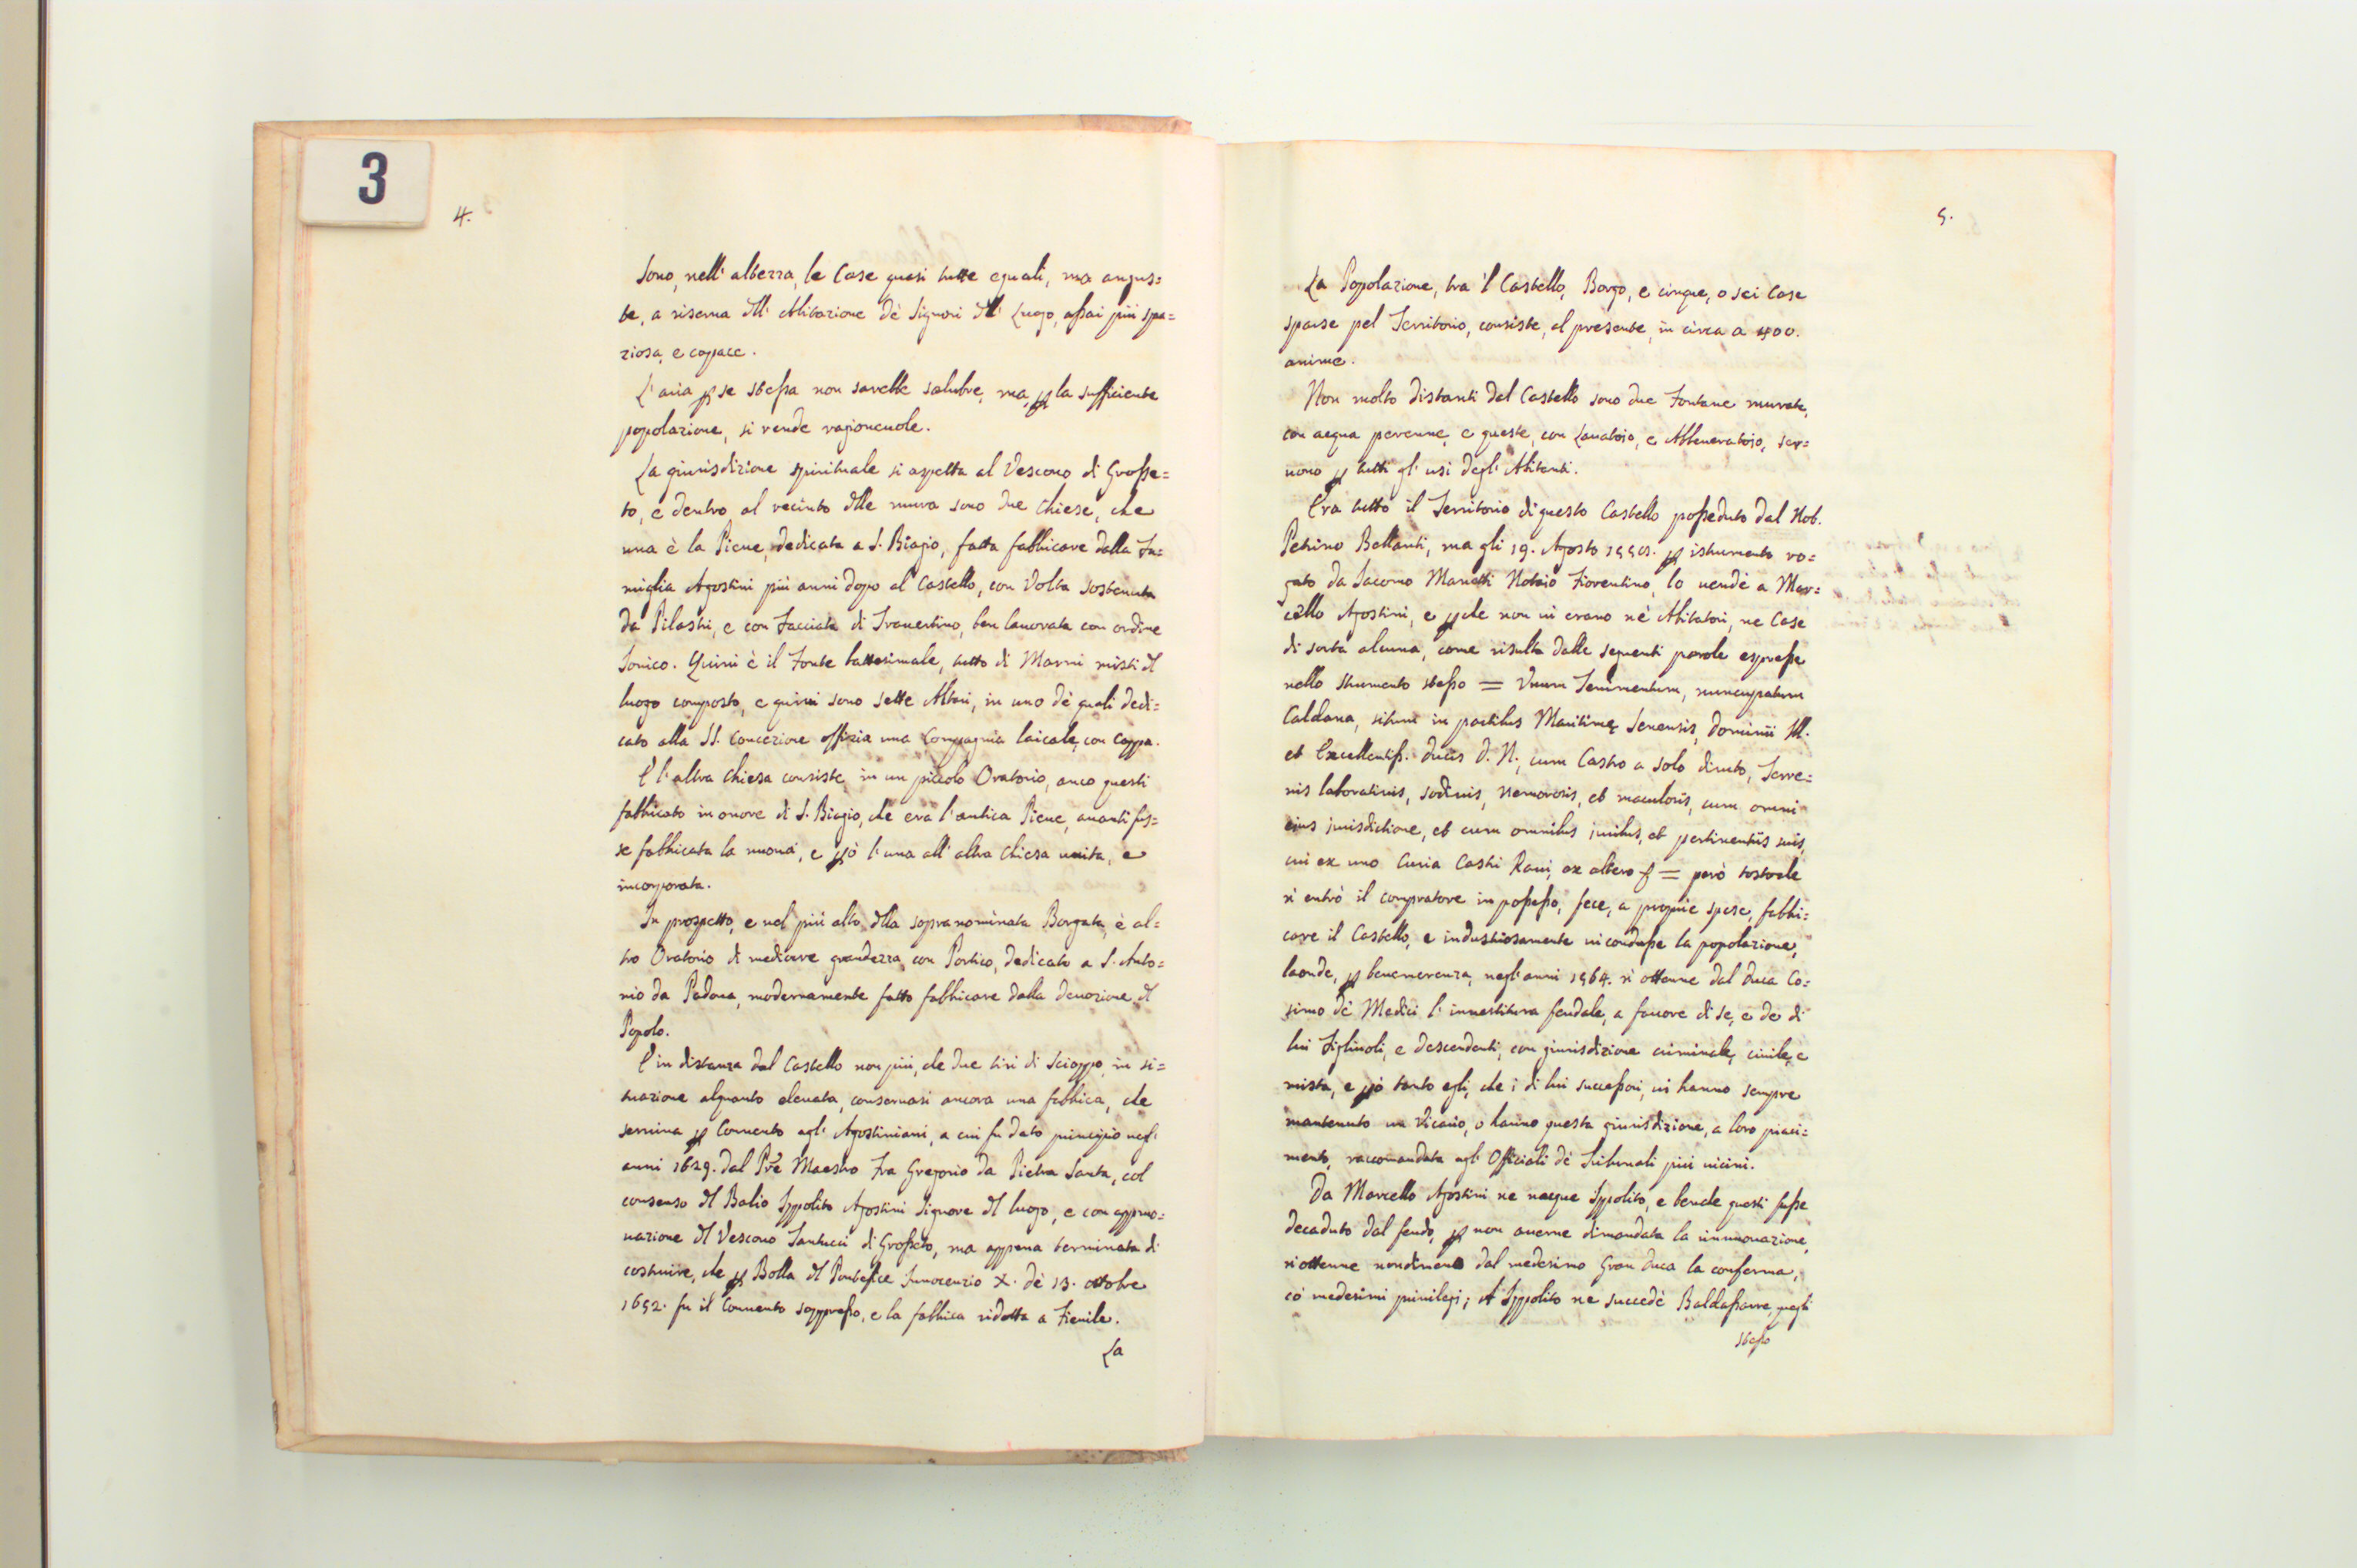 3
4.
Sono, nell'altezza, le Case quasi tutte eguali, ma angus=
te, a riserua dll'Abitazione dè Signori dl Luogo, assai più spa=
ziosa, e capace.
L'aria p se stessa non sarebbe salubre, ma, p la sufficiente
popolazione, si rende ragioneuole.
La giurisdizione spirituale si aspetta al Vescouo di Grosse=
to, e dentro al recinto dlle mura sono due Chiese, che
una è la Pieue, dedicata a S. Biagio, fatta fabbricare dalla Fa=
miglia Agostini più anni dopo al Castello, con Volta sostenuta
da Pilastri, e con Facciata di Trauertino, ben lauorata con ordine
Ionico. Quiui è il Fonte battesimale, tutto di Marmi misti dl
luogo composto, e quiui sono sette Altari, in uno dè quali dedi=
cato alla SS. Concezione offizia una Compagnia laicale, con Cappa.
E l'altra Chiesa consiste in un piccolo Oratorio, anco questi
fabbricato in onore di S. Biagio, che era l'antica Pieue, auanti fus=
se fabbricata la nuoua, e pò l'una all'altra Chiesa unita, e
incorporata.
In prospetto, e nel più alto dlla sopranominata Borgata, è al=
tro Oratorio di mediocre grandezza, con Portico, dedicato a S. Anto=
nio da Padoua, modernamente fatto fabbricare dalla deuozione dl
Popolo.
E in distanza dal Castello non più, che due tiri di Scioppo, in si=
tuazione alquanto eleuata, conseruasi ancora una fabbrica, che
seruiua p Conuento agl'Agostiniani, a cui fu dato principio negl'
anni 1629. dal Prē Maestro Fra Gregorio da Pietra Santa, col
consenso dl Balio Ippolito Agostini Signore dl luogo, e con appro=
uazione dl Vescouo Santucci di Grosseto, ma appena terminata di
costruire, che p Bolla dl Pontefice Innocenzio X. dè 13. ottobre
1652. fu il Conuento soppresso, e la fabbrica ridotta a Fienile.
La
5.
La Popolazione, tra'l Castello, Borgo, e cinque, o sei Case
sparse pel Territorio, consiste, al presente, in circa a 400.
anime.
Non molto distanti dal Castello sono due Fontane murate,
con acqua perenne, e queste, con Lauatoio, e Abbeueratoio, ser=
uono p tutti gl'usi degl'Abitanti.
Era tutto il Territorio di questo Castello posseduto dal Nob.
Petrino Bellanti, ma gli 19. Agosto p istrumento ro=
gato da Iacomo Manetti Notaio Fiorentino, lo uendè a Mar=
cello Agostini, e pche non ui erano nè Abitatori, ne Case
di sorta alcuna, come risulta dalle seguenti parole espresse
nello strumento stesso = Unum Tenimentum, nuncupatum
Caldana, situm in partibus Maritimę Senensis, dominii Ill.
et Excellentiss. Ducis D. N., cum Castro a solo diruto, Terre=
nis laboratiuis, sodiuis, nemorosis, et maculosis, cum omni
eius jurisdictione, et cum omnibus juribus, et pertinentiis suis,
cui ex uno Curia Castri Raui, ex altero = però tostoche
n'entrò il compratore in possesso, fece, a proprie spese, fabbri=
care il Castello, e industriosamente ui condusse la popolazione,
laonde, p benemerenza, negl'anni 1564. n'ottenne dal Duca Co=
simo dè Medici l'inuestitura feudale, a fauore di se, e de di
lui Figliuoli, e descendenti, con giurisdizione criminale, ciuile, e
mista, e pò tanto egli, che i di lui successori, ui hanno sempre
mantenuto un Vicario, o hanno questa giurisdizione, a loro piaci=
mento, raccomandata agl'Officiali dè Tribunali più uicini.
Da Marcello Agostini ne nacque Ippolito, e benche questi fusse
decaduto dal feudo, p non auerne dimandata la rinnouazione,
n'ottenne nondimeno dal medesimo Gran Duca la conferma,
có medesimi priuilegi; A Ippolito ne succedè Baldassarre, quegli
stesso